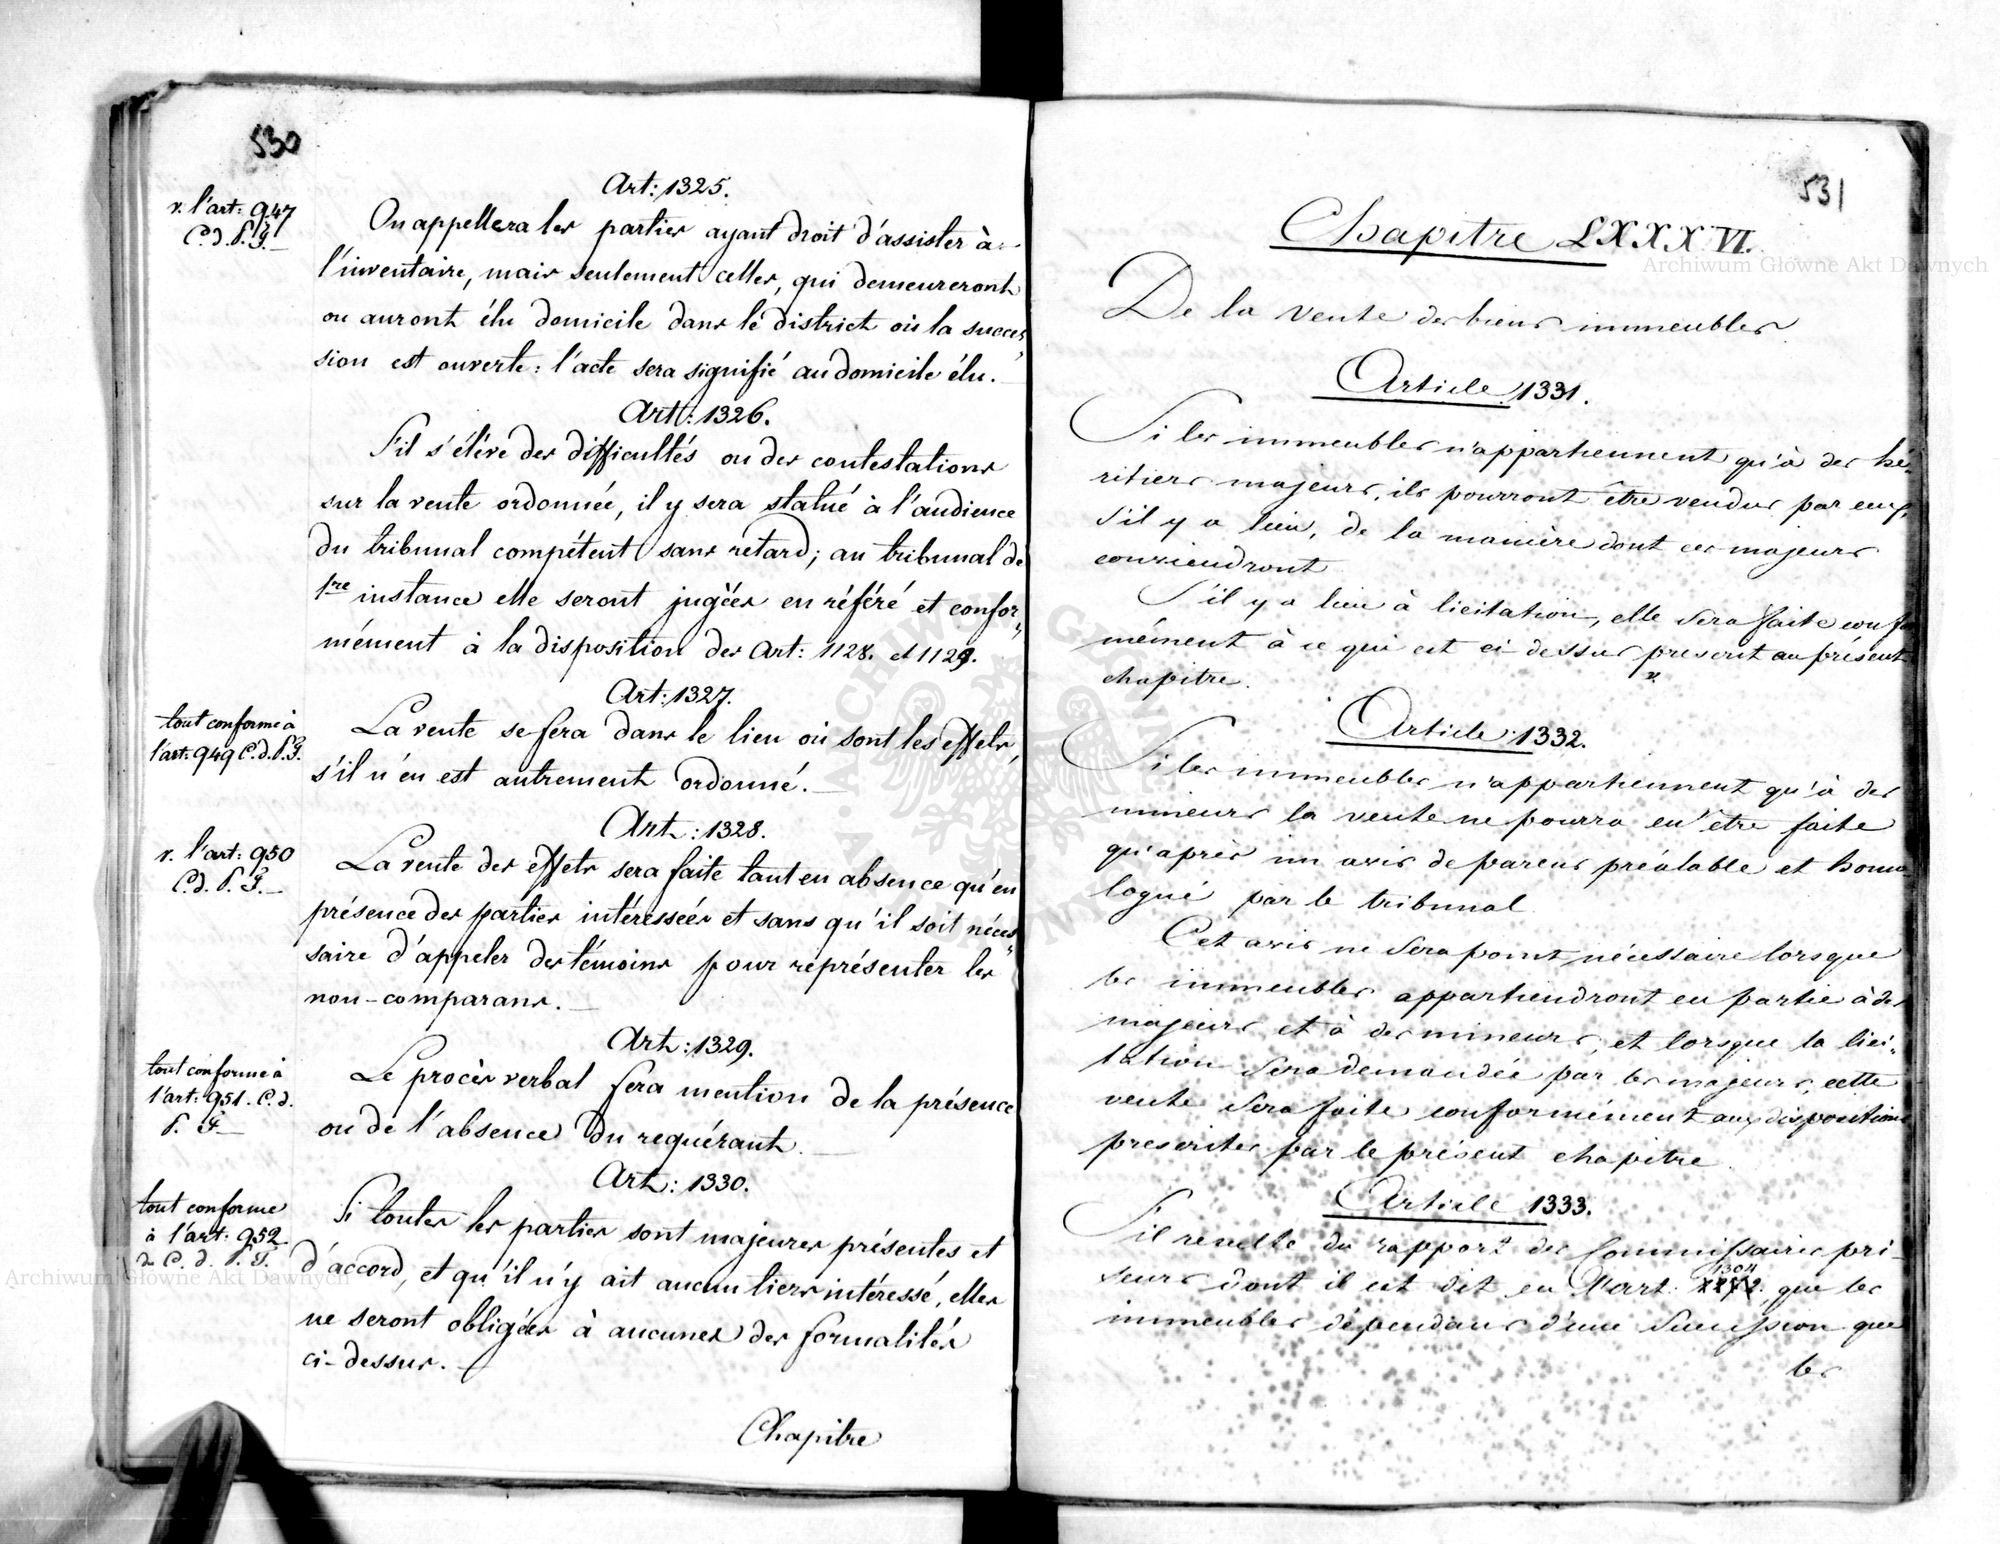 530
Art: 1325.
v. l'art: 947
C. d. P. F.
On appellera les parties ayant droit d'assister à
l'inventaire, mais seulement celles, qui demeureront
ou auront élu domicile dans le district où la succes„
sion est ouverte: l'acte sera signifié au domicile élu.
Art: 1326.
S'il s'élève des difficultés ou des contestations
sur la vente ordonnée, il y sera statué à l'audience
du tribunal compétent sans retard; au tribunal de
1re instance elle seront jugées en référé et confor„
mément à la disposition des Art: 1128. et 1129.
Art: 1327.
tout conforme à
l'art: 949 C. d. P. F.
La vente se fera dans le lieu où sont les effets,
s'il n'en est autrement ordonné.
Art: 1328.
v. l'art: 950
C. d. P. F.
La vente des effets sera faite tant en absence qu'en
présence des parties intéressées et sans qu'il soit néces„
saire d'appeler des témoins pour représenter les
non-comparans.
Art: 1329.
tout conforme à
l'art: 951. C. d.
P. F.
Le procès verbal fera mention de la présence
ou de l'absence du requérant.
Art: 1330.
tout conforme
à l'art: 952
d. C. d. P. F.
Si toutes les parties sont majeures présentes et
d'accord, et qu'il n'y ait aucun tiers intéressé, elles
ne seront obligées à aucunes des formalités
ci-dessus.
Chapitre
531
Chapitre LXXXVI.
De la vente des biens immeubles.
Article 1331.
Si les immeubles n'appartiennent qu'à des hé„
ritiers majeurs, ils pourront être vendus par eux,
s'il y a lieu, de la manière dont ces majeurs
conviendront
S'il y a lieu à licitation, elle sera faite confor
mément à ce qui est ci dessus prescrit au présent
chapitre.
Article 1332.
Si les immeubles n'appartiennent qu'à des
mineurs la vente ne pourra en être faite
qu'après un avis de parens préalable et homo
logué par le tribunal
Cet avis ne sera point nécessaire lorsque
les immeubles appartiendront en partie à des
majeurs et à des mineurs, et lorsque la lici„
tation sera demandée par les majeurs, cette
vente sera faite conformément aux dispositions
prescrites par le présent chapitre.
Article 1333.
S'il résulte du rapport des Commissaires pri-
1304
seurs dont il est dit en l'art: 1272. que les
immeubles dépendans d'une succession que
les
Archiwum Główne Akt Dawnych
Archiwum Główne Akt Dawnych